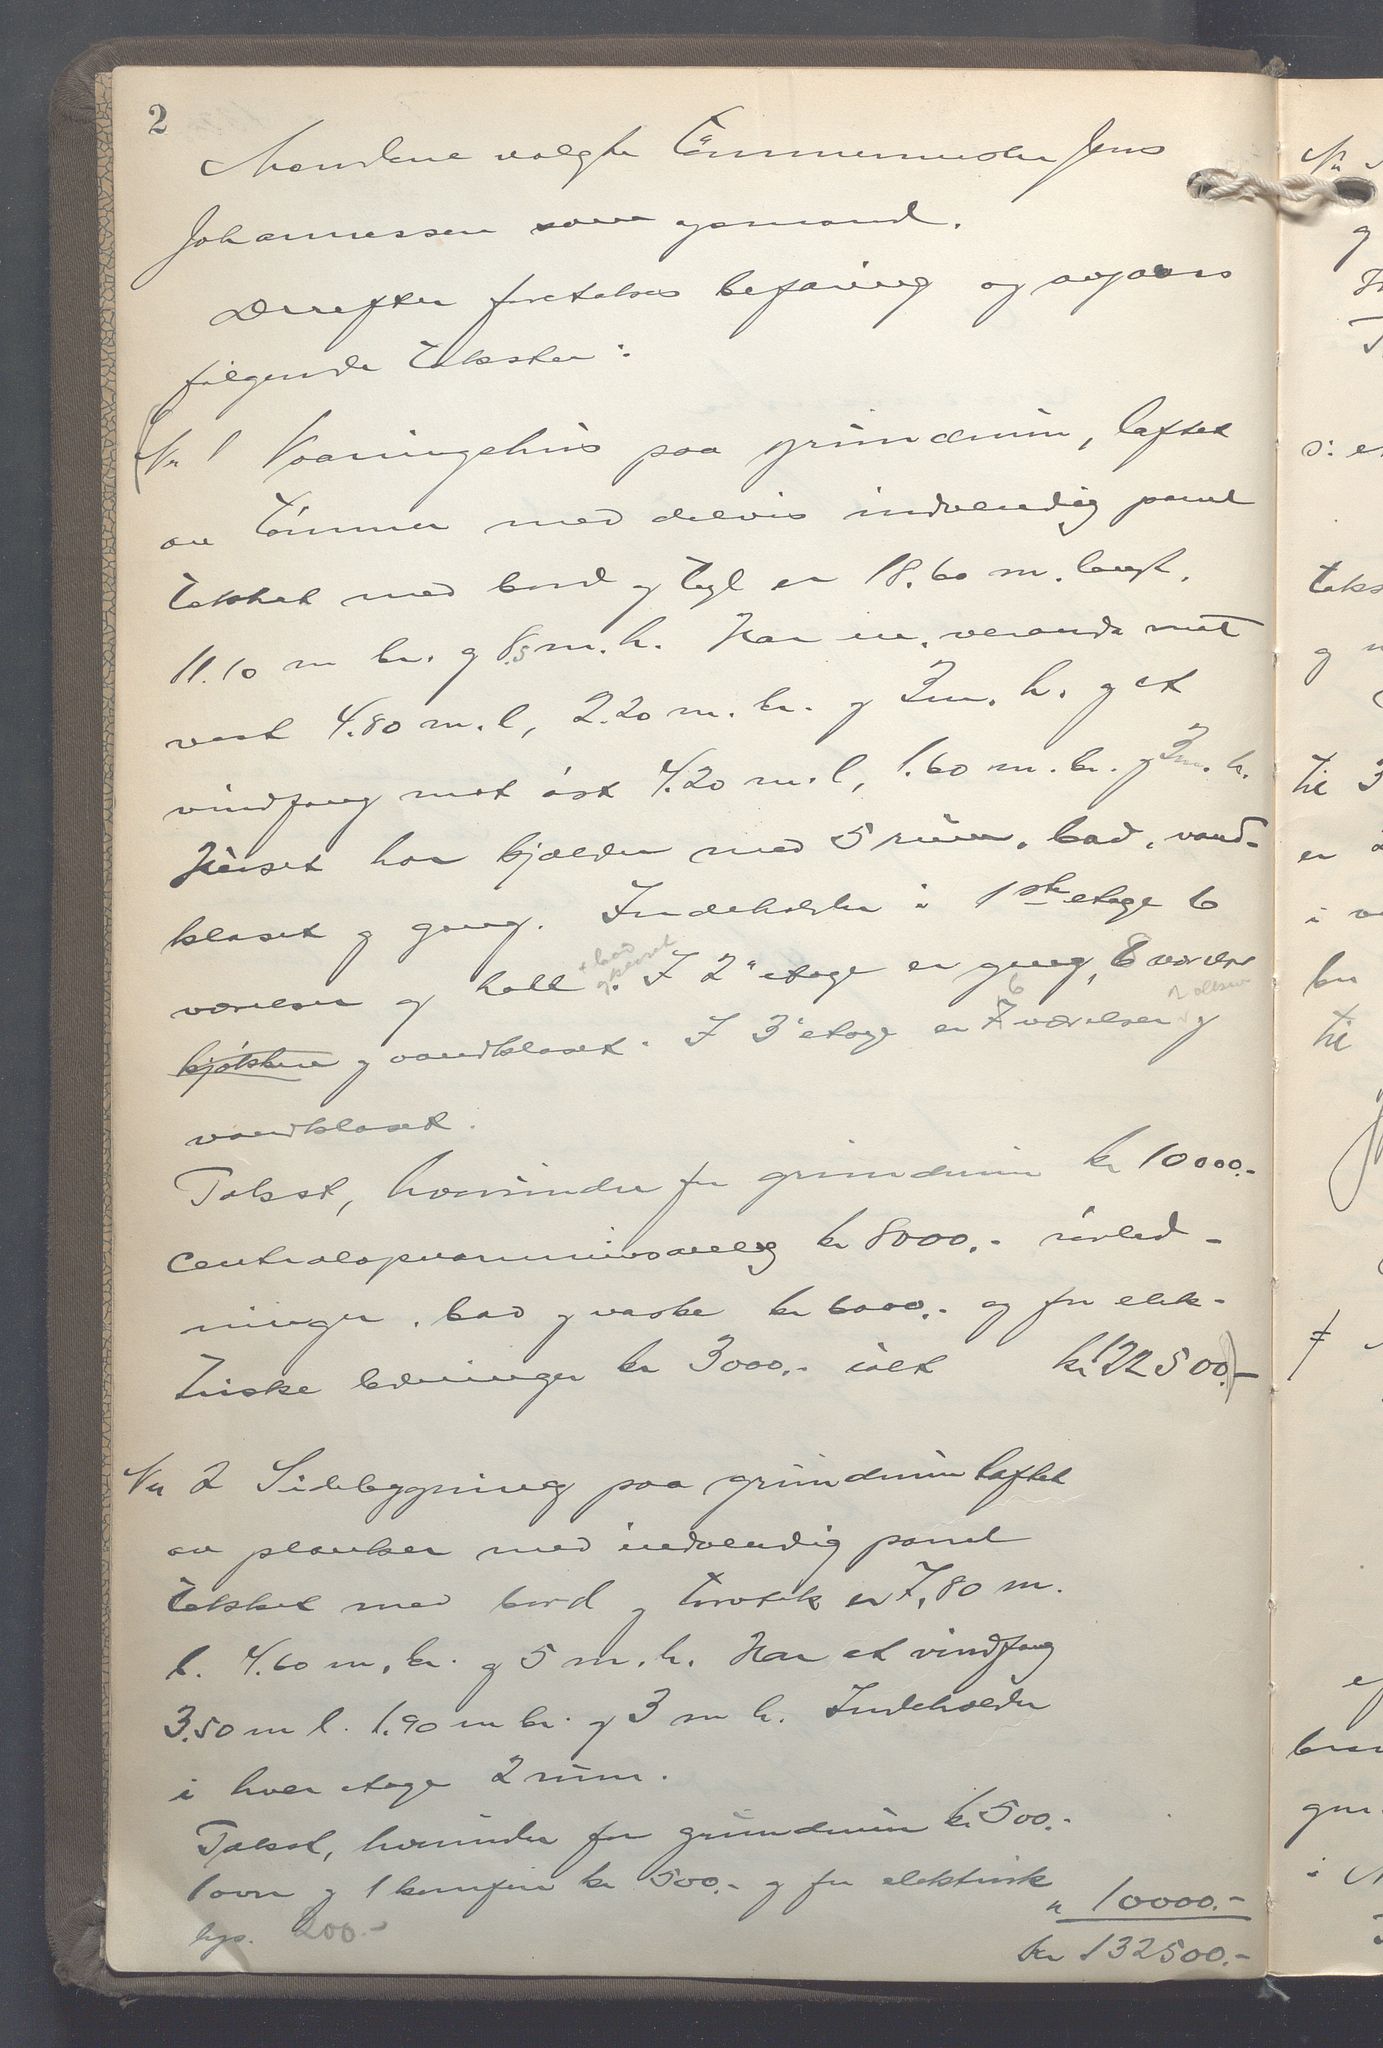 2
Mændene valgte Tömmermester Jens
Johannessen som ogsmand.
Derefter foretakes befaring og avgaves
fölgende Takster:
(Nr 1 Vaaningshus paa grundmur, laftet
av Tömmer med delvis indvendig panel
Tækket med bord og Tegl er 18.60 m. langt,
11.10 m br. og 8.5 m. h. Har en veranda mot
vest 4.80 m. l, 2.20 m. br. og 3 m. h. og et
vindfang mot öst 4.20 m. l, 1.60 m. br. og 3 m. h.
Huset har kjælder med 5 rum, bad, vand-
kloset og gang. Indeholder i 1ste etage 6
værelser og hall + bad og kloset. I 2" etage er gang, 6 værelser
kjökken og vandkloset. I 3" etage er 7 6 værelser og
vandkloset.
Takst, hvorunder for grundmur kr 10000.-
centralopvarmningsanlæg kr 8000.- rörled-
ninger, bad og vaske kr 6000.- og for elek-
triske ledninger kr 3000.- ialt kr 122500.-)
Nr 2 Sidebygning paa grundmur laftet
av planker med indvendig panel
Tækket med bord og torvtak er 7,80 m.
l. 4.60 m. br. og 5 m. h. Har et vindfang
3.50 m l. 1.90 m br. og 3 m h. Indeholder
i hver etage 2 rum.
Takst, hvorunder for grundmur kr 500.-
1 ovn og 1 komfur kr 500.- og for elektrisk
lys. 200.- " 10000.-
kr 132500.-